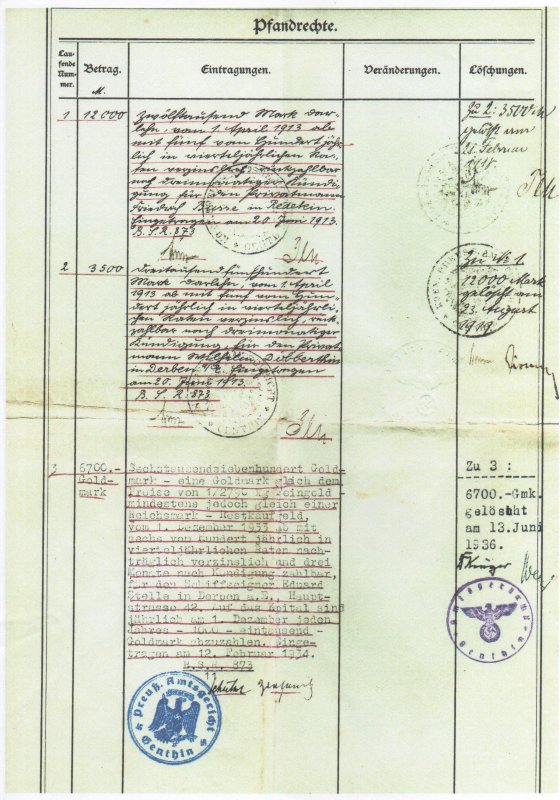 Pfandrechte.
Lau-
fende
Num-
mer.
Betrag.
M.
Eintragungen.
Veränderungen.
Löschungen.
1
12000
Zwölftausend Mark Dar-
lehn, vom 1. April 1913 ab
mit fünf vom Hundert jähr-
lich in vierteljährlichen Ra-
ten verzinslich, rückzahlbar
nach dreimonatiger Kündi-
gung für den Privatmann
Friedrich in Redekin.
Eingetragen am 20. Juni 1913.
B. S. R. 873
Zu 2: 3500 M
gelöscht am
21. Februar
1918.
2
3500
Dreitausendfünfhundert
Mark Darlehn, vom 1. April
1913 ab mit fünf vom Hun-
dert jährlich in vierteljährli-
chen Raten verzinslich, rück-
zahlbar nach dreimonatiger
Kündigung, für den Privat-
mann Wilhelm Döbberthin
in Derben a/E. Eingetragen
am 20. Juni 1913.
B. S. R. 873
Zu № 1
12000 Mark
gelöscht am
23. August
1919.
3
6700.-
Gold-
mark
Sechstausendsiebenhundert Gold-
mark - eine Goldmark gleich dem
Preise von 1/2790 kg Feingold -
mindestens jedoch gleich einer
Reichsmark - Restkaufgeld,
vom 1. Dezember 1933 ab mit
sechs vom Hundert jährlich in
vierteljährlichen Raten nach-
träglich verzinslich und drei
Monate nach Kündigung zahlbar,
für den Schiffseigner Eduard
Stelle in Derben a.E., Haupt-
strasse 42. Auf das Kapital sind
jährlich am 1. Dezember jeden
Jahres - 1000 - eintausend -
Goldmark abzuzahlen. Einge-
tragen am 12. Februar 1934.
B.S.R. 873
Zu 3 :
6700.-Gmk.
gelöscht
am 13.Juni
1936.
Krüger
Amtsgericht
Genthin
Preuß. Amtsgericht
Genthin